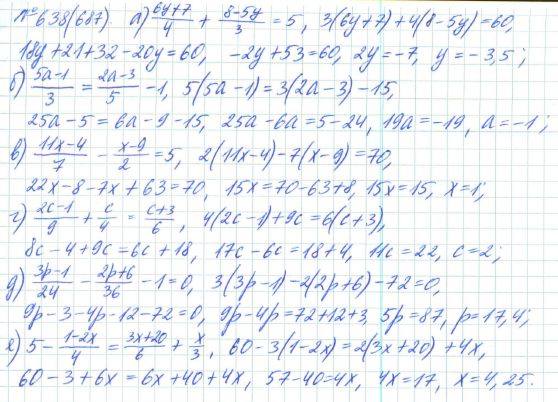 №638(687). а) (6y+7)/4 + (8-5y)/3 = 5, 3(6y+7)+4(8-5y)=60,
18y+21+32-20y=60, -2y+53=60, 2y=-7, y=-3,5;
б) (5a-1)/3 = (2a-3)/5 - 1, 5(5a-1)=3(2a-3)-15,
25a-5=6a-9-15, 25a-6a=5-24, 19a=-19, a=-1;
в) (11x-4)/7 - (x-9)/2 = 5, 2(11x-4)-7(x-9)=70,
22x-8-7x+63=70, 15x=70-63+8, 15x=15, x=1;
г) (2c-1)/9 + c/4 = (c+3)/6, 4(2c-1)+9c=6(c+3),
8c-4+9c=6c+18, 17c-6c=18+4, 11c=22, c=2;
д) (3p-1)/24 - (2p+6)/36 - 1=0, 3(3p-1)-2(2p+6)-72=0,
9p-3-4p-12-72=0, 9p-4p=72+12+3, 5p=87, p=17,4;
е) 5 - (1-2x)/4 = (3x+20)/6 + x/3, 60-3(1-2x)=2(3x+20)+4x,
60-3+6x=6x+40+4x, 57-40=4x, 4x=17, x=4,25.